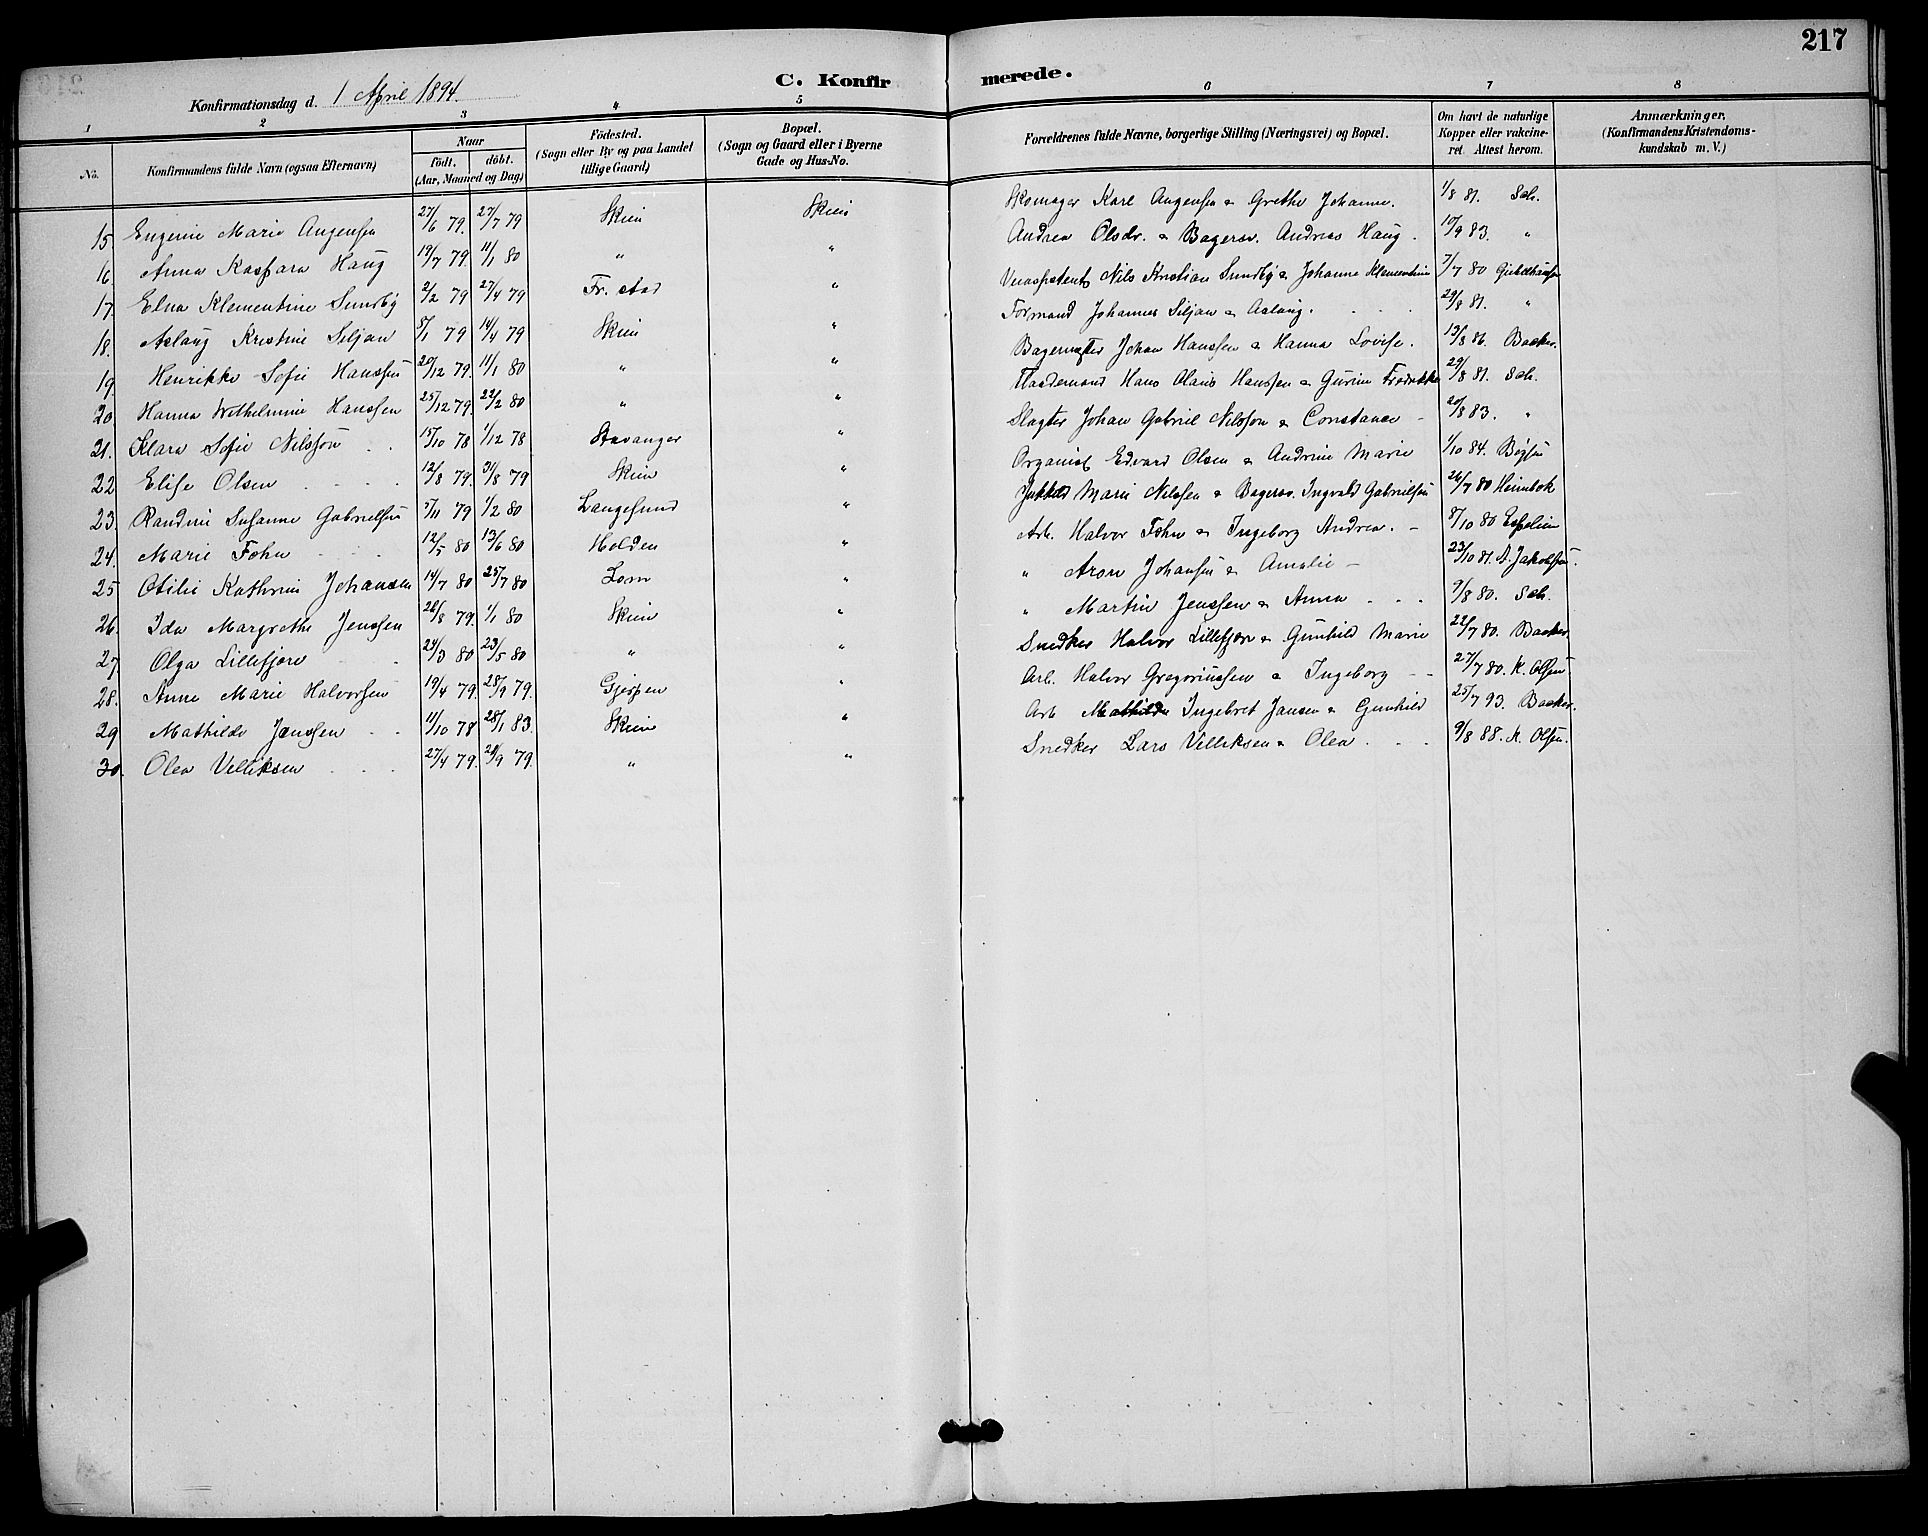 217
C. Konfirmerede.
Konfirmationsdag d. 1 April 1894.
1 2 3 4 5 6 7 8
No. Konfirmandens fulde Navn (ogsaa Efternavn) Naar födt, döbt. (Aar, Maaned og Dag) Födested. (Sogn eller By og paa Landet tillige Gaard) Bopæl. (Sogn og Gaard eller i Byerne Gade og Hus-No. Forældrenes fulde Navne, borgerlige Stilling (Næringsvei) og Bopæl. Om havt de naturlige Kopper eller vakcineret. Attest herom. Anmærkninger. (Konfirmandens Kristendomskundskab m. V.)
15. Eugenie Marie Augensen 27/6 79. 27/7 79 Skien Skien Skomager Karl Augensen & Grethe Johanne. 1/8 81. Sch.
16. Anna Kaspara Haug 19/7 79. 11/1 80 " " Andrea Olsdr. & Bagersv. Andreas Haug. 10/9 83. "
17. Elna Klementine Sundby 2/2 79 27/4 79 Fr. stad " Nils Kristian Sundby & Johanne Klementine 7/7 80
18. Aslaug Kristine Siljan 8/1 79 14/4 79 Skien " Formand Johannes Siljan & Aslaug. 29/8 81. "
19. Henrikke Sofie Hanssen 20/12 79. 11/1 80 " " Bagermester Johan Hanssen & Hanna Lovise. 19/8 86. Baaker.
20. Hanna Wilhelmine Hanssen 25/12 79. 22/2 80 " " Hans Olaus Hanssen & Gurine Fredrikke 29/8 81. Sch.
21. Klara Sofie Nilsson 15/10 78 1/12 78 Stavanger " Slagter Johan Gabriel Nilsson & Constance - 20/8 83. "
22 Elise Olsen 12/8 79. 31/8 79 Skien " Organist Edvard Olsen & Andrine Marie 1/10 84.
23. Randine Susanne Gabrielsen 5/11 79 1/2 80 Langesund " Marie Nilssen & Bagersv. Ingvald Gabrielsen 26/7 80 Heimbek
24. Marie Fohn 12/5 80 13/6 80 Holden " Arb. Halvor Fohn & Ingeborg Andrea. - 8/10 80 Espelien
25 Otilie Kathrine Johansen 14/7 80 25/7 80 Lom " " Aron Johansen & Amalie - 23/10 81. A. Jakobsen.
26. Ida Margrethe Jenssen 22/8 79. 1/1 80 Skien " " Martin Jenssen & Anna 9/8 80. Sch.
27. Olga Lillefjære 24/3 80 23/5 80 " " Snedker Halvor Lillefjære & Gunhild Marie 22/7 80. Baaker.
28. Anne Marie Halvorsen 19/4 79. 28/9 79. Gjerpen " Arb. Halvor Gregoriussen & Ingeborg - - 27/7 80. K. Olsen
29 Mathilde Janssen 11/10 78 28/1 83. Skien " Arb Mathilde Ingebret Jansen & Gunhild 25/7 93. Baaker.
30. Olea Velliksen 27/4 79. 29/9 79. " " Snedker Lars Velliksen & Olea 9/8 88. K. Olsen.